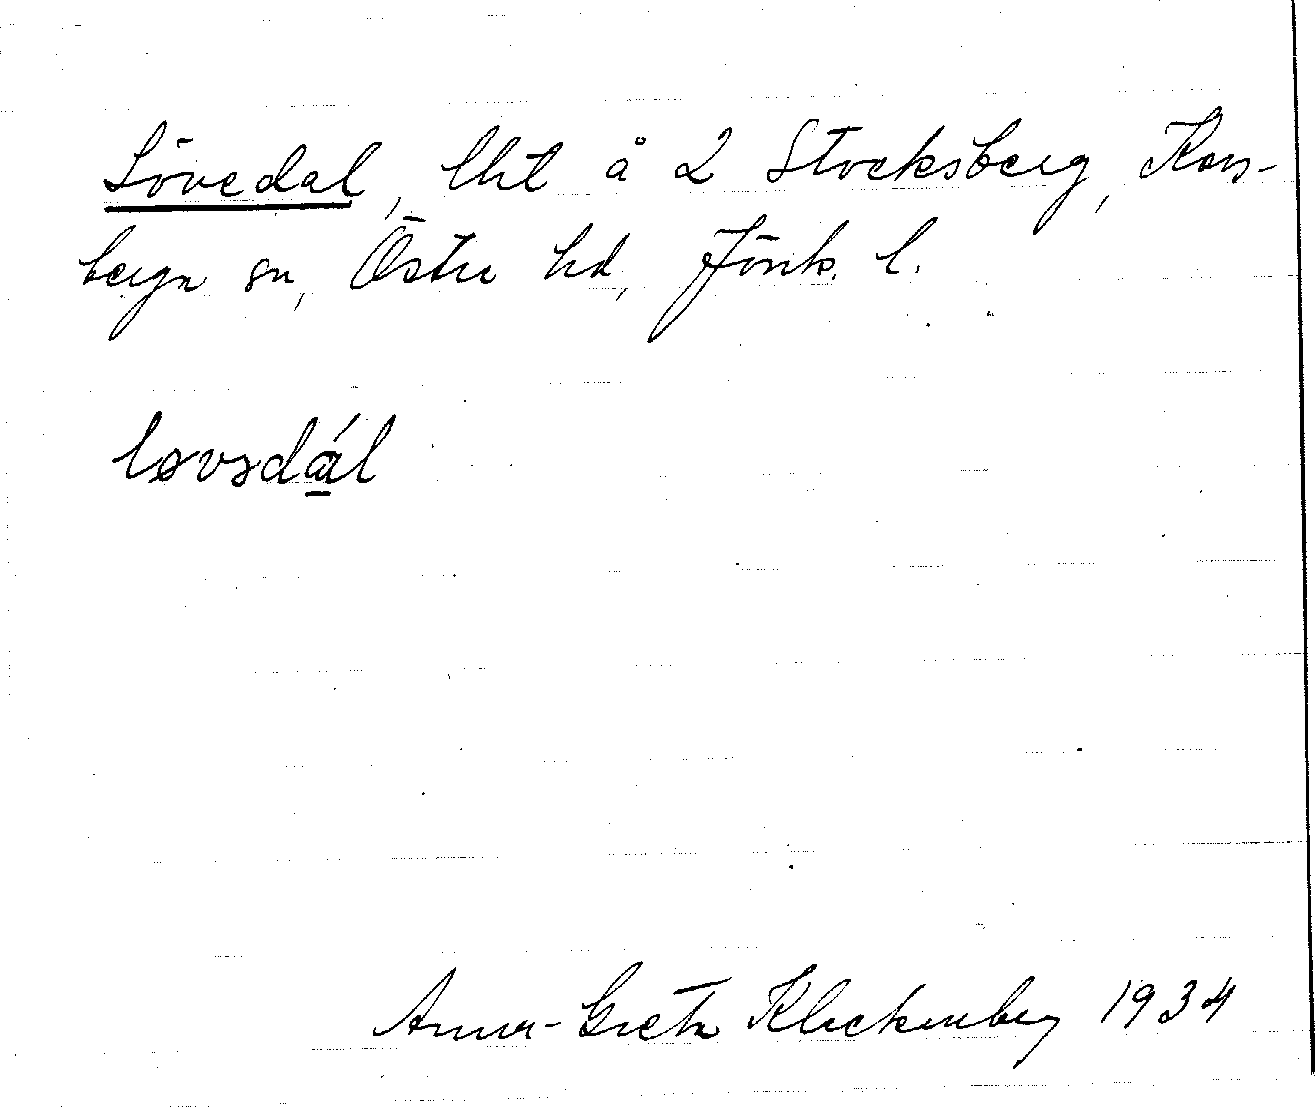 Lövedal, lht å 2 Stocksberg, Kors-
berga sn, Östra hd, Jönk. l.
løvədál
Anna-Greta Kleckenberg 1934